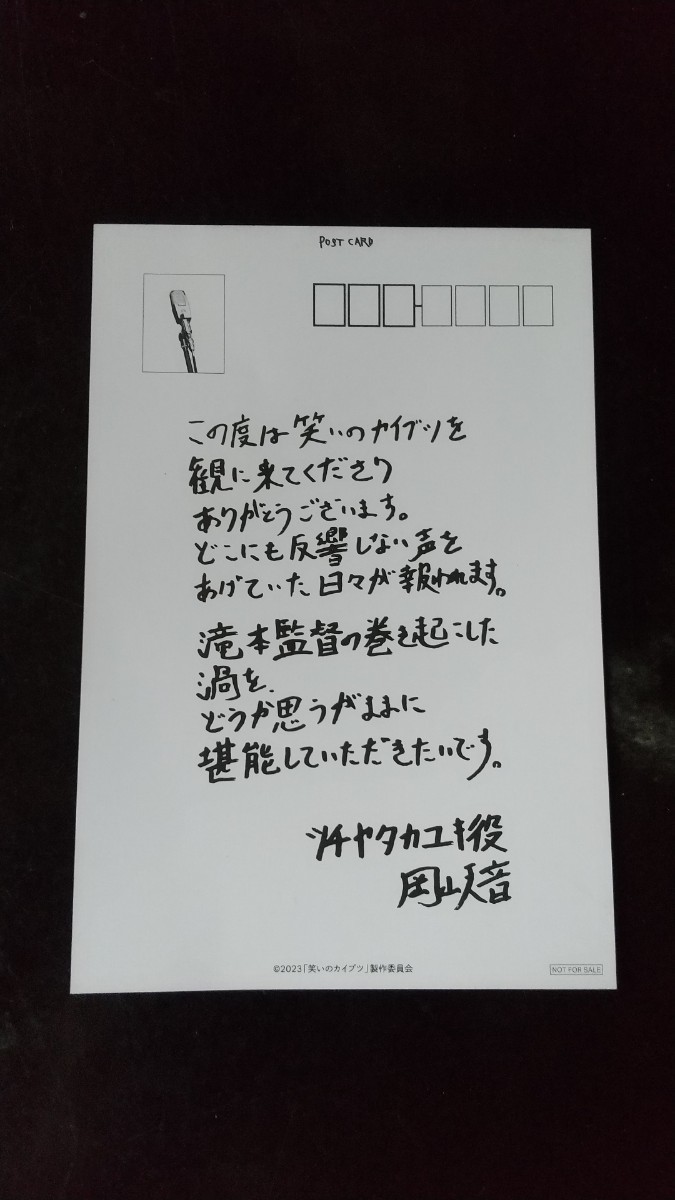 POST CARD
この度は笑いのカイブツを
観に来てくださり
ありがとうございます。
どこにも反響しない声を
あげていた日々が報われます。
滝本監督の巻き起こした
渦を、
どうか思うがままに
堪能していただきたいです。
ツチヤタカユキ役
岡山天音
©2023「笑いのカイブツ」製作委員会
NOT FOR SALE